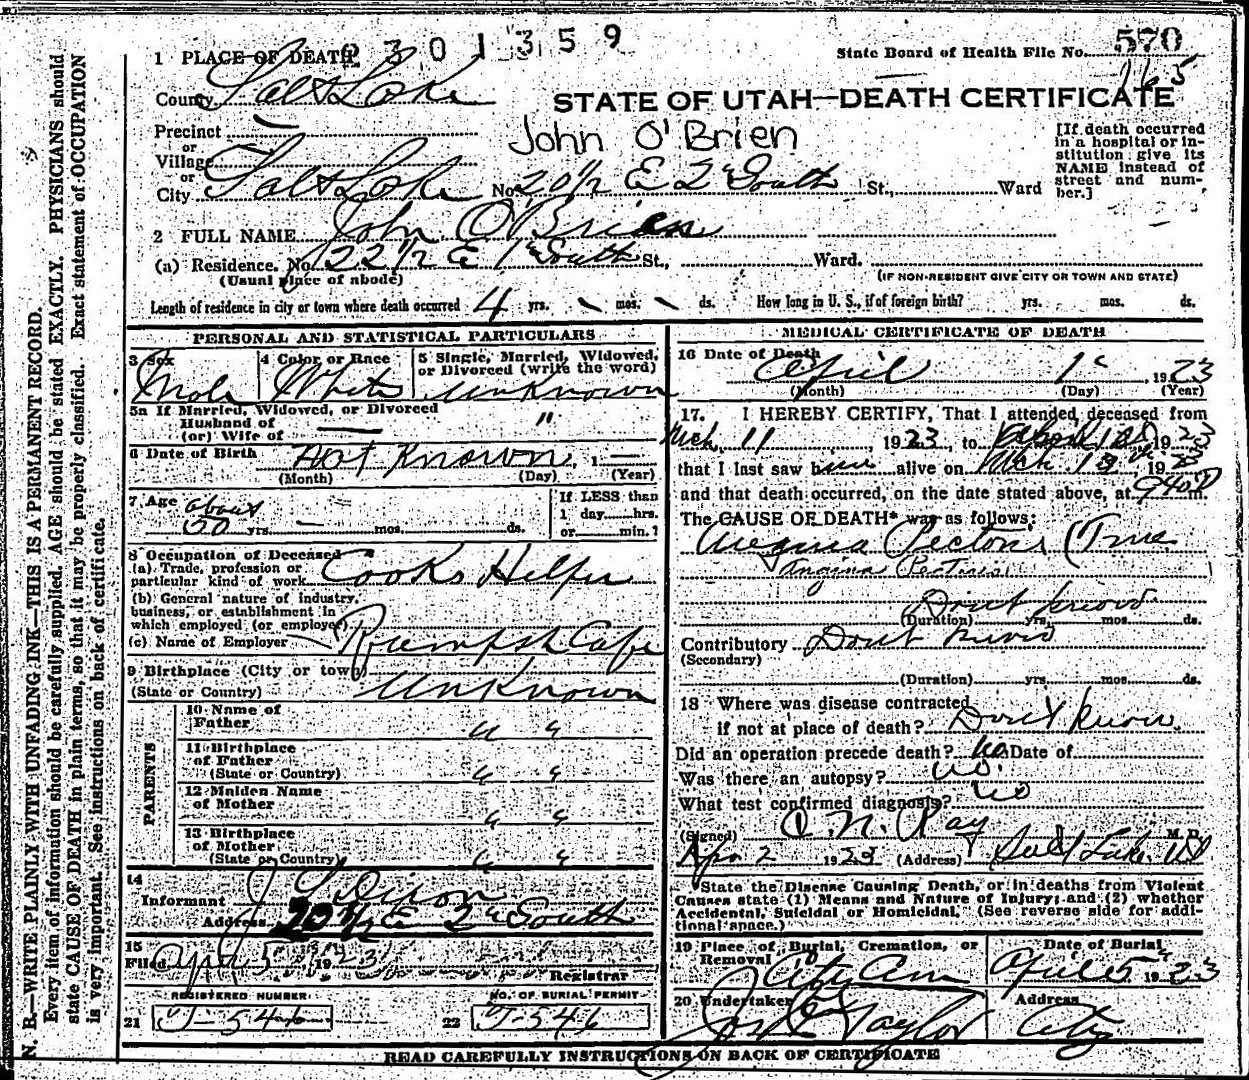 2301359
State Board of Health File No. 570
165
1 PLACE OF DEATH
County Salt Lake
STATE OF UTAH—DEATH CERTIFICATE
Precinct
or
Village
or
City Salt Lake No. 20½ E 2d South St., Ward
John O'Brien
[If death occurred
in a hospital or in-
stitution give its
NAME instead of
street and num-
ber.]
2 FULL NAME John O'Brien
(a) Residence. No. 122½ E 1st South St., Ward.
(Usual place of abode)
(IF NON-RESIDENT GIVE CITY OR TOWN AND STATE)
Length of residence in city or town where death occurred 4 yrs. mos. ds. How long in U. S., if of foreign birth? yrs. mos. ds.
PERSONAL AND STATISTICAL PARTICULARS
3 Sex Male
4 Color or Race White
5 Single, Married, Widowed,
or Divorced (write the word)
Unknown
5a If Married, Widowed, or Divorced
Husband of
(or) Wife of "
6 Date of Birth Not Known, 1—
(Month) (Day) (Year)
7 Age about
50 yrs. — mos. ds.
If LESS than
1 day hrs.
or min.?
8 Occupation of Deceased
(a) Trade, profession or
particular kind of work Cooks Helper
(b) General nature of industry,
business, or establishment in
which employed (or employer)
(c) Name of Employer Cafe
9 Birthplace (City or town)
(State or Country) Unknown
PARENTS
10 Name of
Father " "
11 Birthplace
of Father
(State or Country) " "
12 Maiden Name
of Mother " "
13 Birthplace
of Mother
(State or Country) " "
14
Informant J Dixon
Address 20½ E 2d South
15
Filed Apr 5, 1923
Registrar
REGISTERED NUMBER
21 J-546
NO. OF BURIAL PERMIT
22 J-546
MEDICAL CERTIFICATE OF DEATH
16 Date of Death
April 1st, 1923
(Month) (Day) (Year)
17. I HEREBY CERTIFY, That I attended deceased from
Mch. 11 1923, to April 1st 1923
that I last saw him alive on Mch. 1923
and that death occurred, on the date stated above, at 940 P m.
The CAUSE OF DEATH* was as follows:
Angina Pectoris (True
Angina Pectoris
Dont know
(Duration) yrs. mos. ds.
Contributory Dont know
(Secondary)
(Duration) yrs. mos. ds.
18 Where was disease contracted
if not at place of death? Dont know
Did an operation precede death? No Date of
Was there an autopsy? No.
What test confirmed diagnosis? No
(Signed) O. N. Ray M.D.
Apr 2 1923 (Address) Salt Lake Ut
*State the Disease Causing Death, or in deaths from Violent
Causes state (1) Means and Nature of Injury; and (2) whether
Accidental, Suicidal or Homicidal. (See reverse side for addi-
tional space.)
19 Place of Burial, Cremation, or
Removal City Cem
Date of Burial
April 5th 1923
20 Undertaker
Jos E Taylor
Address
City
READ CAREFULLY INSTRUCTIONS ON BACK OF CERTIFICATE
N. B.—WRITE PLAINLY WITH UNFADING INK—THIS IS A PERMANENT RECORD.
Every item of information should be carefully supplied. AGE should be stated EXACTLY. PHYSICIANS should
state CAUSE OF DEATH in plain terms, so that it may be properly classified. Exact statement of OCCUPATION
is very important. See instructions on back of certificate.